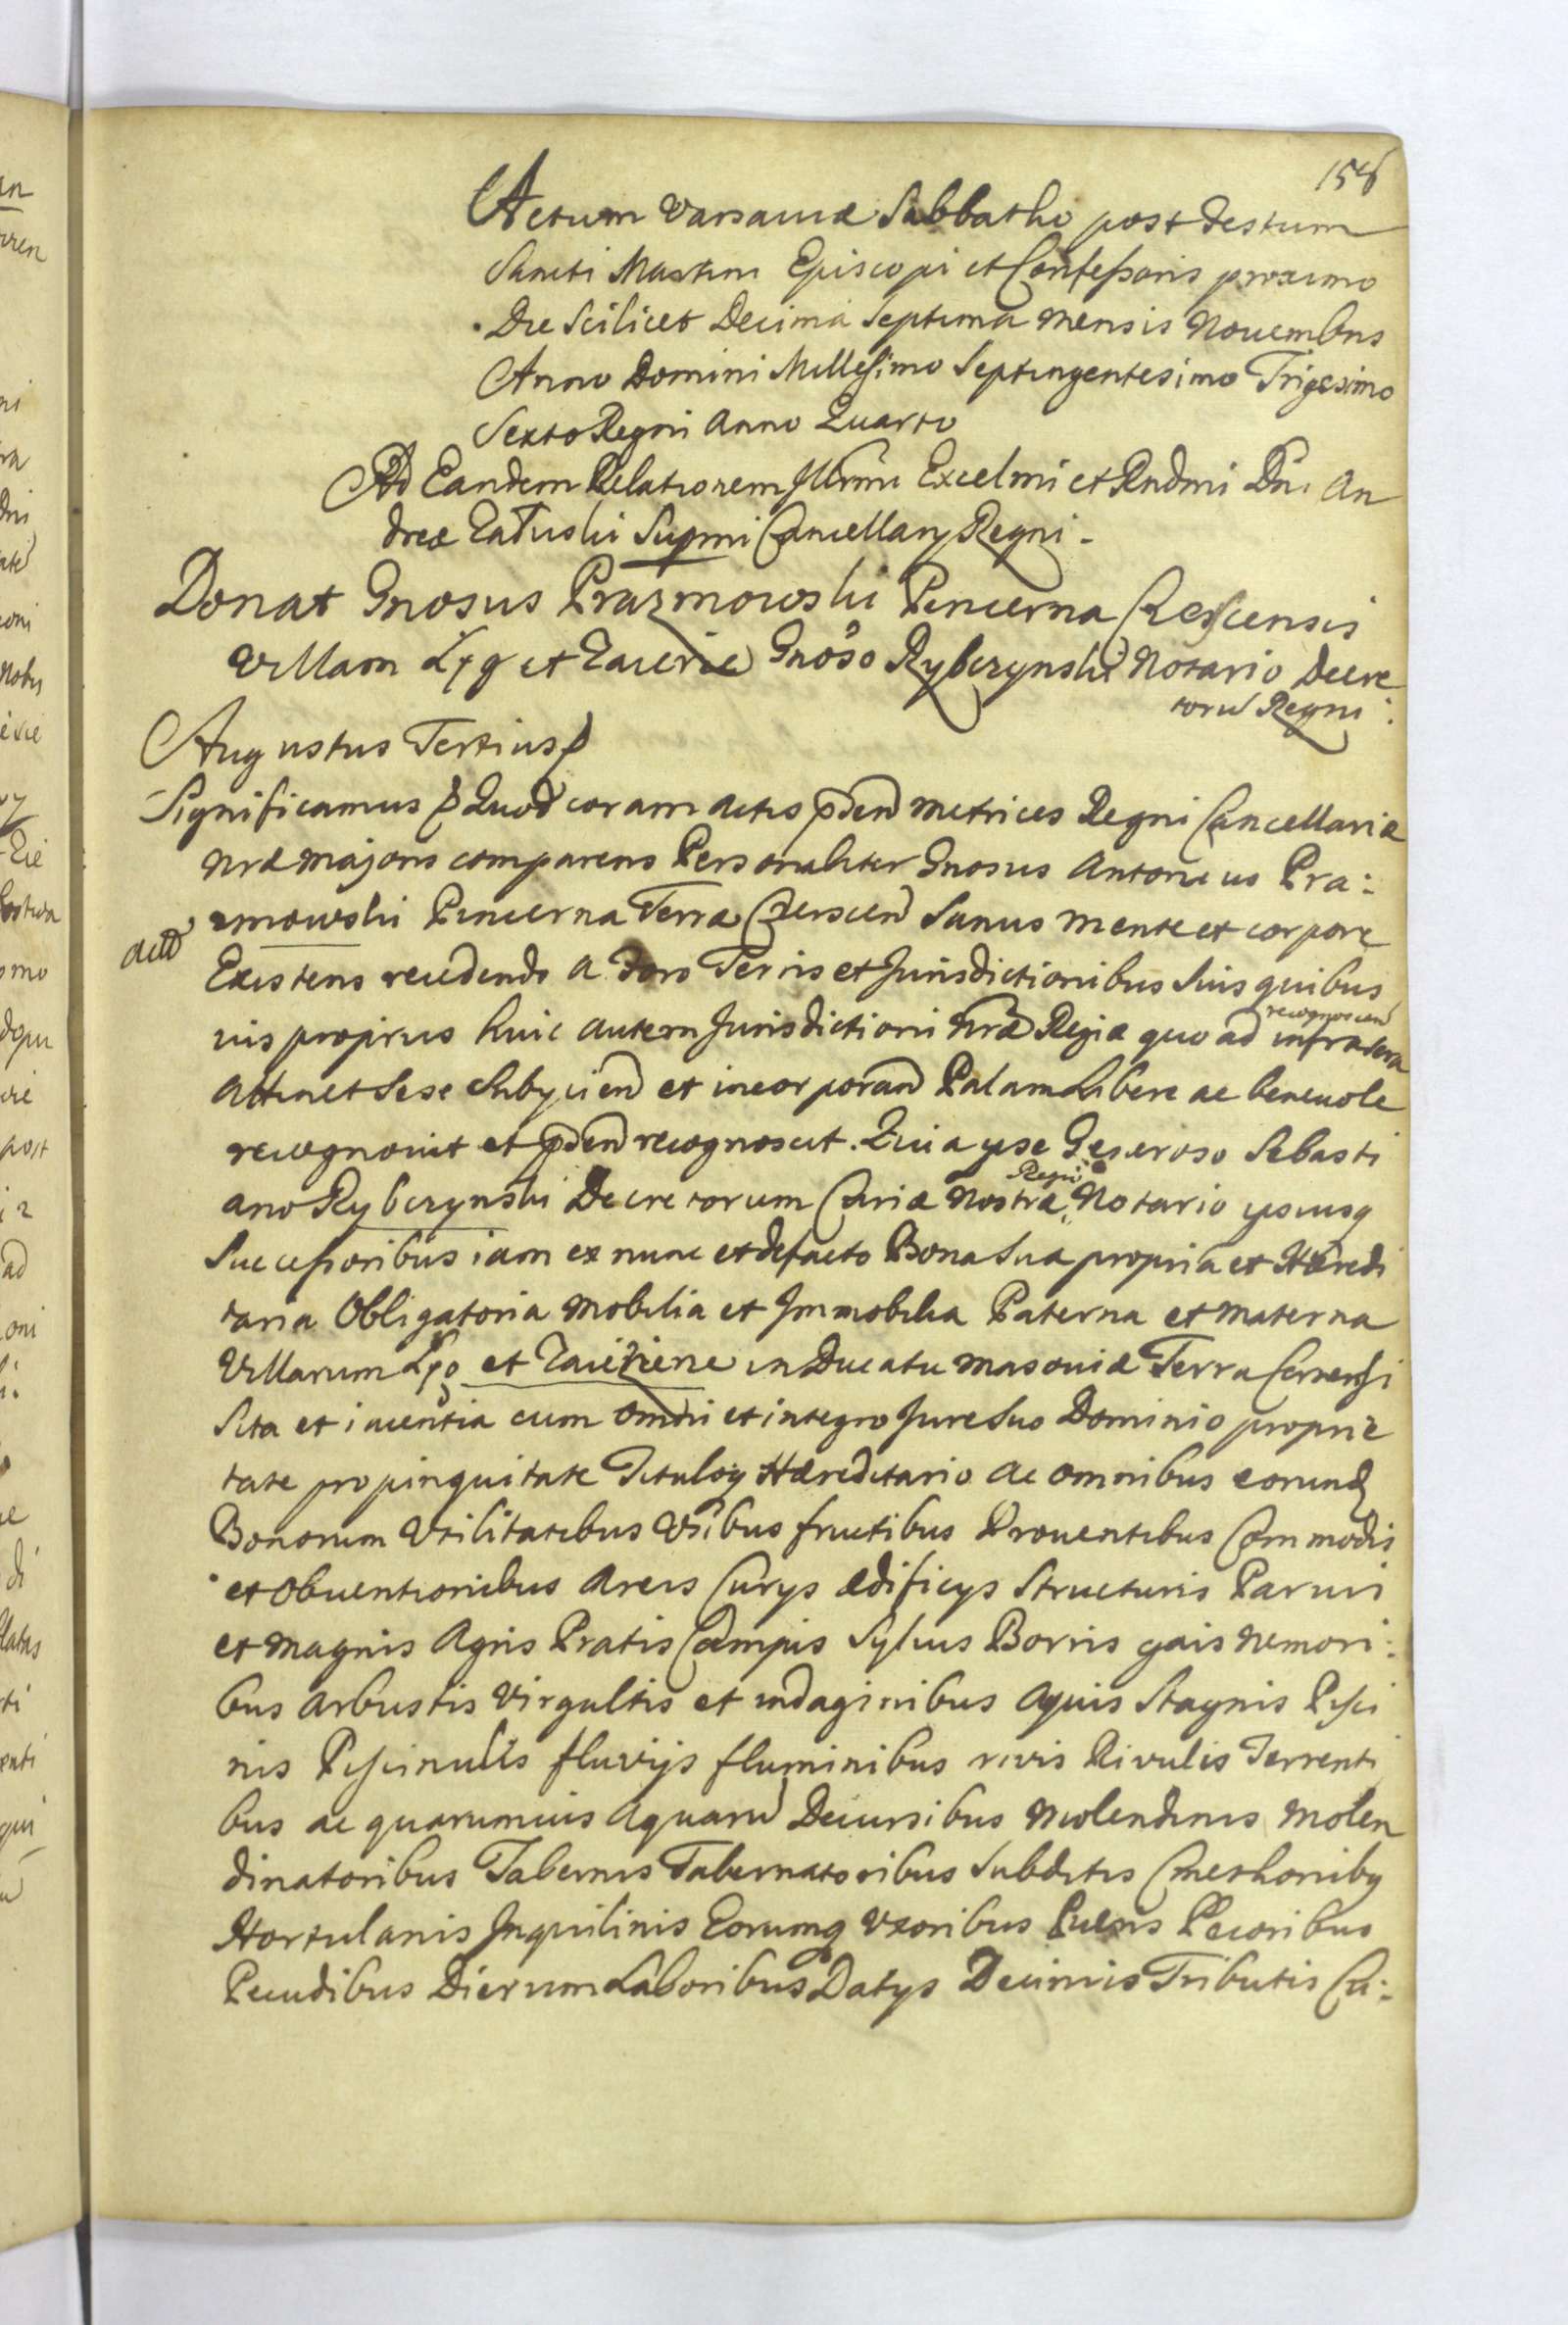 158
Actum Varsauiæ Sabbatho post Festum
Sancti Martini Episcopi et Confessoris proximo
Die Scilicet Decima Septima mensis Nouembris
Anno Domini Millesimo Septingentesimo Trigesimo
Sexto Regni Anno Quarto
Ad Eandem Relationem Illrmi Excelmi et Rndmi Dni An
dreæ Załuski Supmi Cancellarij Regni -
Donat Gnosus Prazmowski Pincerna Cerscensis
Villam Łyg et Gnoso Rybczynski Notario Decre
toru Regni :
Augustus Tertius
Significamus Quod coram Actis pden metrices Regni Cancellariæ
nræ majoris comparens Personaliter Gnosus Antonius Pra:
zmowski Pincerna Terræ Czerscen Sanus mente et corpore
Existens recedendo a Foro Terris et Jurisdictionibus Suis quibus
uis proprius huic autem Jurisdictioni nræ Regiæ quo ad recognoscen infrascra
Attinet Sese Subyciend et incorporand Palam Libere ac beneuole
recognouit et pden recognoscit. Quia ipse Generoso Sebasti
ano Rybczynski Decretorum Cariæ Nostræ Regni Notario ipsiusq
Successoribus iam ex nunc et defacto Bona Sua propria et Hæredi
taria Obligatoria mobilia et Immobilia Paterna et materna
Villarum et in Ducatu masouiæ Terra Cersensi
Sita et iacentia cum omni et integro Jure Suo Dominio proprie
tate propinquitate Tituloq Hæreditario ac omnibus eorund
Bonorum Vtilitatibus Vsibus fructibus Prouentibus Commodis
et obuentionibus Areis Curys ædificys Structuris Paruis
et magnis Agris Pratis Campis Syluis Borris gais nemori:
bus arbustis Virgultis et indaginibus Aquis Stagnis Pisci
nis Piscinulis fluvijs fluminibus rivis Rivulis Torrenti
bus ac quarumuis Aquaru Decursibus Molendinis Molen
dinatoribus Tabernis Tabernatoribus Subditis Cmethonibq
Hortulanis Inquilinis Eorumq Vxoribus Pueris Pecoribus
Pecudibus Dierum Laboribus Datys Decimis Tributis